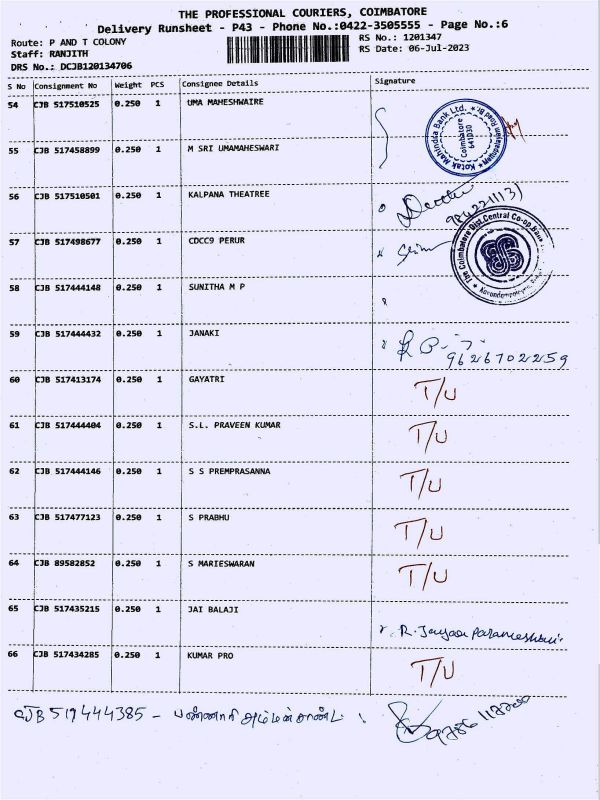 THE PROFESSIONAL COURIERS, COIMBATORE
Delivery Runsheet - P43 - Phone No.:0422-3505555 - Page No.:6
Route: P AND T COLONY
RS No.: 1201347
Staff: RANJITH
RS Date: 06-Jul-2023
DRS No.: DCJB120134706
S No Consignment No Weight PCS Consignee Details Signature
54 CJB 517510525 0.250 1 UMA MAHESHWAIRE
Kotak Mahindra Bank Ltd.
Coimbatore
641030
55 CJB 517458899 0.250 1 M SRI UMAMAHESWARI
56 CJB 517510501 0.250 1 KALPANA THEATREE
57 CJB 517498677 0.250 1 CDCC9 PERUR
The Coimbatore Dist.Central Co-op.Bank
58 CJB 517444148 0.250 1 SUNITHA M P
59 CJB 517444432 0.250 1 JANAKI
9626702259
60 CJB 517413174 0.250 1 GAYATRI T/U
61 CJB 517444404 0.250 1 S.L. PRAVEEN KUMAR T/U
62 CJB 517444146 0.250 1 S S PREMPRASANNA T/U
63 CJB 517477123 0.250 1 S PRABHU T/U
64 CJB 89582852 0.250 1 S MARIESWARAN T/U
65 CJB 517435215 0.250 1 JAI BALAJI R. Jayaa Parameshwari
66 CJB 517434285 0.250 1 KUMAR PRO T/U
CJB 517444385 - பண்ணாரி அம்மன்